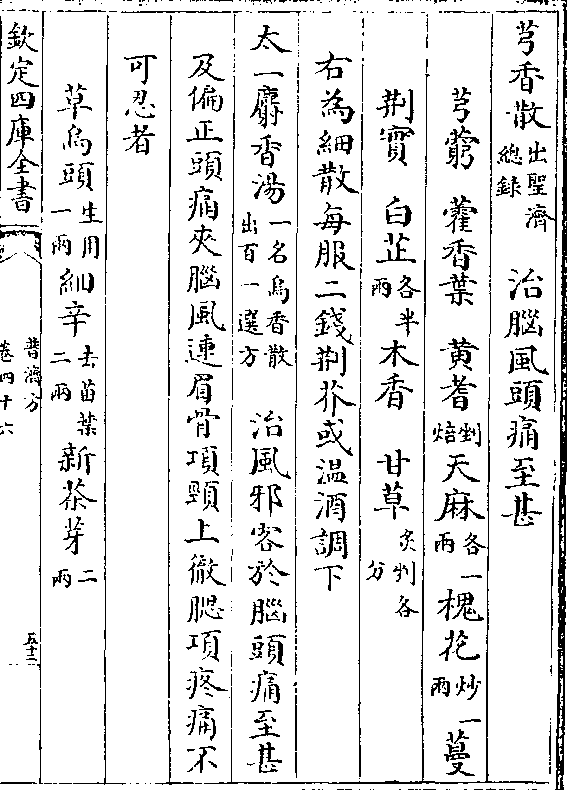 芎香散出聖濟總錄　治腦風頭痛至甚
芎藭　藿香葉　黄耆剉焙　天麻各一兩　槐花炒一兩　蔓
荆實　白芷各半兩　木香　甘草炙剉各分
右為細散每服二錢荆芥或温酒調下
太一麝香湯一名烏香散出百一選方　治風邪客於腦頭痛至甚
及偏正頭痛夾腦風連眉骨項頸上徹腮項疼痛不
可忍者
草烏頭生用一兩　細辛去苗葉二兩　新茶芽二兩
欽定四庫全書
普濟方
卷四十六
五十二